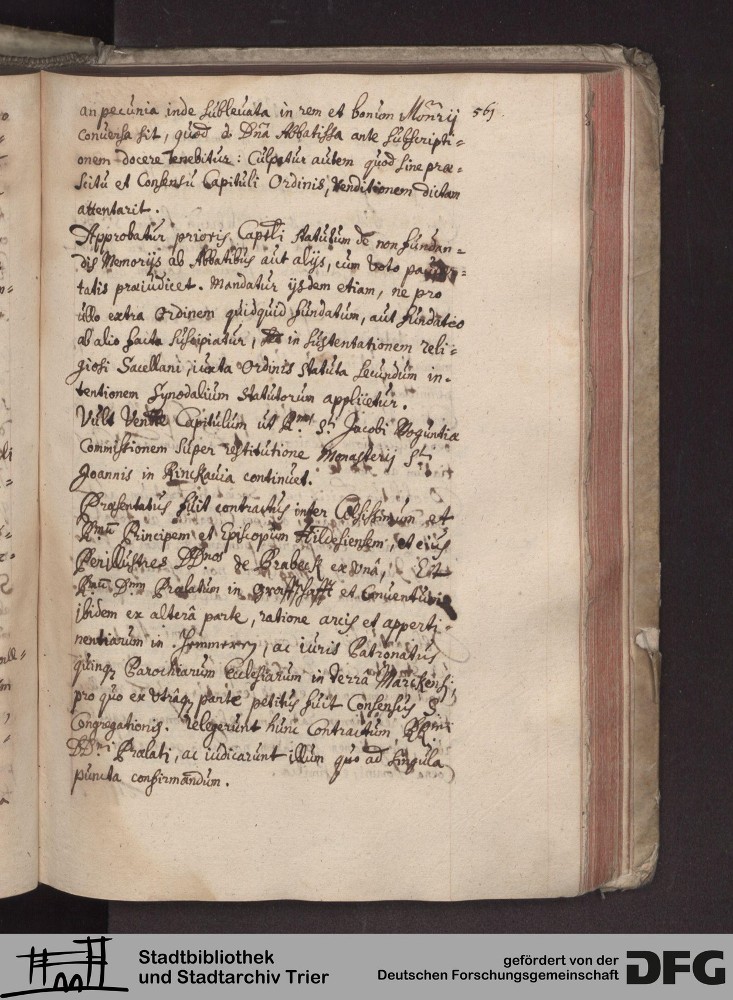 an pecunia inde sublevata in rem et bonum Monrij 561.
conversa sit, quod d. Dna Abbatissa ante subscripti=
onem docere tenebitur: Culpatur autem quod sine præ=
scitu et Consensu Capituli Ordinis, venditionem dictam
attentarit.
Approbatur prioris Captli statutum de non fundan=
dis Memorijs ab Abbatibus aut alijs, cum voto pauper=
tatis præiudicet. Mandatur ijsdem etiam, ne pro
ullo extra Ordinem quidquid fundatum, aut fundatio
ab alio facta suscipiatur, in sustentationem reli=
giosi Sacellani, iuxta Ordinis statuta secundum in=
tentionem Synodalium statutorum applicetur.
Vult Ven Capitulum ut Rmus Sti Jacobi Moguntiæ
Commissionem super restitutione Monasterij Sti
Joannis in Rinckauia continuet.
Præsentatus fuit contractus inter Celsissimum et
Rmum Principem et Episcopum Hildesiensem, et eius
Perillustres DDnos de Brabeck ex unâ, Et
Rmum Dnm Prælatum in Groffschafft et Conventum
ibidem ex alterâ parte, ratione arcis et apperti=
nentiarum in Hemmeren, ac iuris Patronatus
quinq, Parochiarum Ecclesiarum in terrâ Marckensi,
pro quo ex utrâq, parte petitus fuit Consensus S.
Congregationis. relegerunt hunc Contractum RRmi
DDni Prælati, ac iudicarunt illum quo ad singula
puncta confirmandum.
Stadtbibliothek
und Stadtarchiv Trier
gefördert von der
Deutschen Forschungsgemeinschaft
DFG